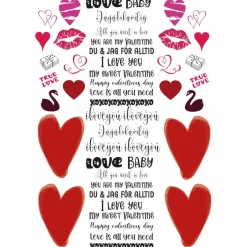 LOVE BABY
Ingalolantij
All you need is love
YOU ARE MY VALENTINE
DU & JAG FÖR ALLTID
I LOVE YOU
MY SWEET VALENTINE
Happy valentines day
love is all you need
TRUE LOVE
TRUE LOVE
XOXOXOXOXOXOXO
iloveyou iloveyou
iloveyou iloveyou
LOVE BABY
All you need is love
YOU ARE MY VALENTINE
DU & JAG FÖR ALLTID
I LOVE YOU
MY SWEET VALENTINE
Happy valentines day
love is all you need
XOXOXOXOXOXOXO